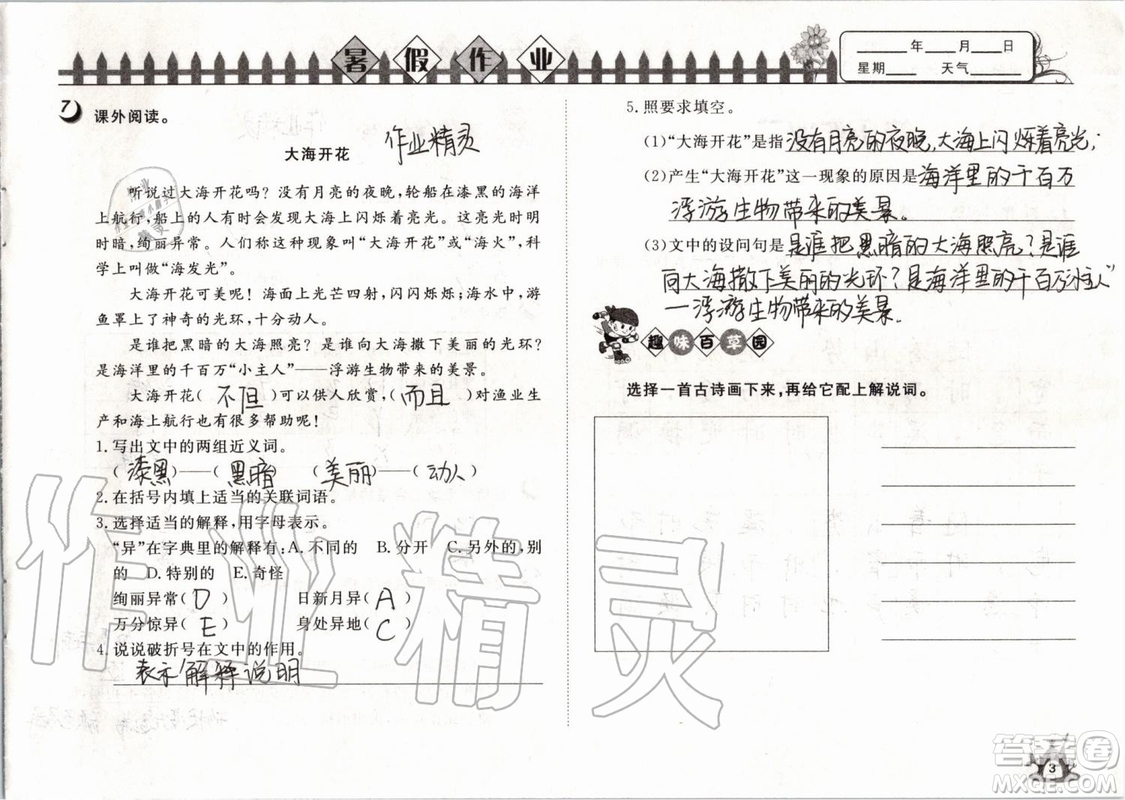 暑假作业
____年____月____日
星期____ 天气____
7 课外阅读。
作业精灵
大海开花
听说过大海开花吗？没有月亮的夜晚，轮船在漆黑的海洋
上航行，船上的人有时会发现大海上闪烁着亮光。这亮光时明
时暗，绚丽异常。人们称这种现象叫“大海开花”或“海火”，科
学上叫做“海发光”。
大海开花可美呢！海面上光芒四射，闪闪烁烁；海水中，游
鱼罩上了神奇的光环，十分动人。
是谁把黑暗的大海照亮？是谁向大海撒下美丽的光环？
是海洋里的千百万“小主人”——浮游生物带来的美景。
大海开花（不但）可以供人欣赏，（而且）对渔业生
产和海上航行也有很多帮助呢！
1.写出文中的两组近义词。
（漆黑）——（黑暗） （美丽）——（动人）
2.在括号内填上适当的关联词语。
3.选择适当的解释，用字母表示。
“异”在字典里的解释有：A.不同的 B.分开 C.另外的，别
的 D.特别的 E.奇怪
绚丽异常（D） 日新月异（A）
万分惊异（E） 身处异地（C）
4.说说破折号在文中的作用。
表示解释说明
5.照要求填空。
（1）“大海开花”是指没有月亮的夜晚，大海上闪烁着亮光；
（2）产生“大海开花”这一现象的原因是海洋里的千百万
浮游生物带来的美景。
（3）文中的设问句是是谁把黑暗的大海照亮？是谁
向大海撒下美丽的光环？是海洋里的千百万“小主人”
—浮游生物带来的美景。
趣味百草园
选择一首古诗画下来，再给它配上解说词。
作业精灵
3
答案卷
MXQE.COM